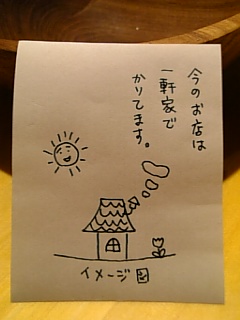 今のお店は
一軒家で
かりてます。
イメージ図